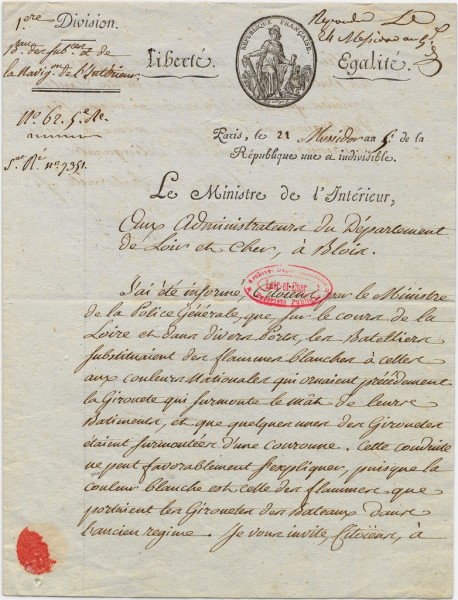 1ere Division.
Bau des Subces et de
la Navigon de l'Intérieur.
No 62. 5e Re.
Sat Ré no 7351.
Liberté.
RÉPUBLIQUE FRANÇAISE.
Répondu Le
24 Messidor an 5
Egalité.
Paris, le 21 Messidor an 5e de la
République une et indivisible.
Le Ministre de l'Intérieur,
Aux Administrateurs du Département
de Loir et Cher, à Blois.
Loir-et-Cher
J'ai été informé, Citoïens, par le Ministre
de la Police Générale, que sur le cours de la
Loire et dans divers Ports, les Batelliers
substituaient des flammes blanches à celles
aux couleurs Nationales qui ornaient précédement
la Girouete qui surmonte le mât de leurs
Batiments, et que quelques unes des Girouetes
étaient surmontées d'une couronne. Cette conduite
ne peut favorablement s'expliquer, puisque la
couleur blanche est celle des flammes que
portaient les Girouetes des Bateaux dans
l'ancien regime. Je vous invite Citoïens, à